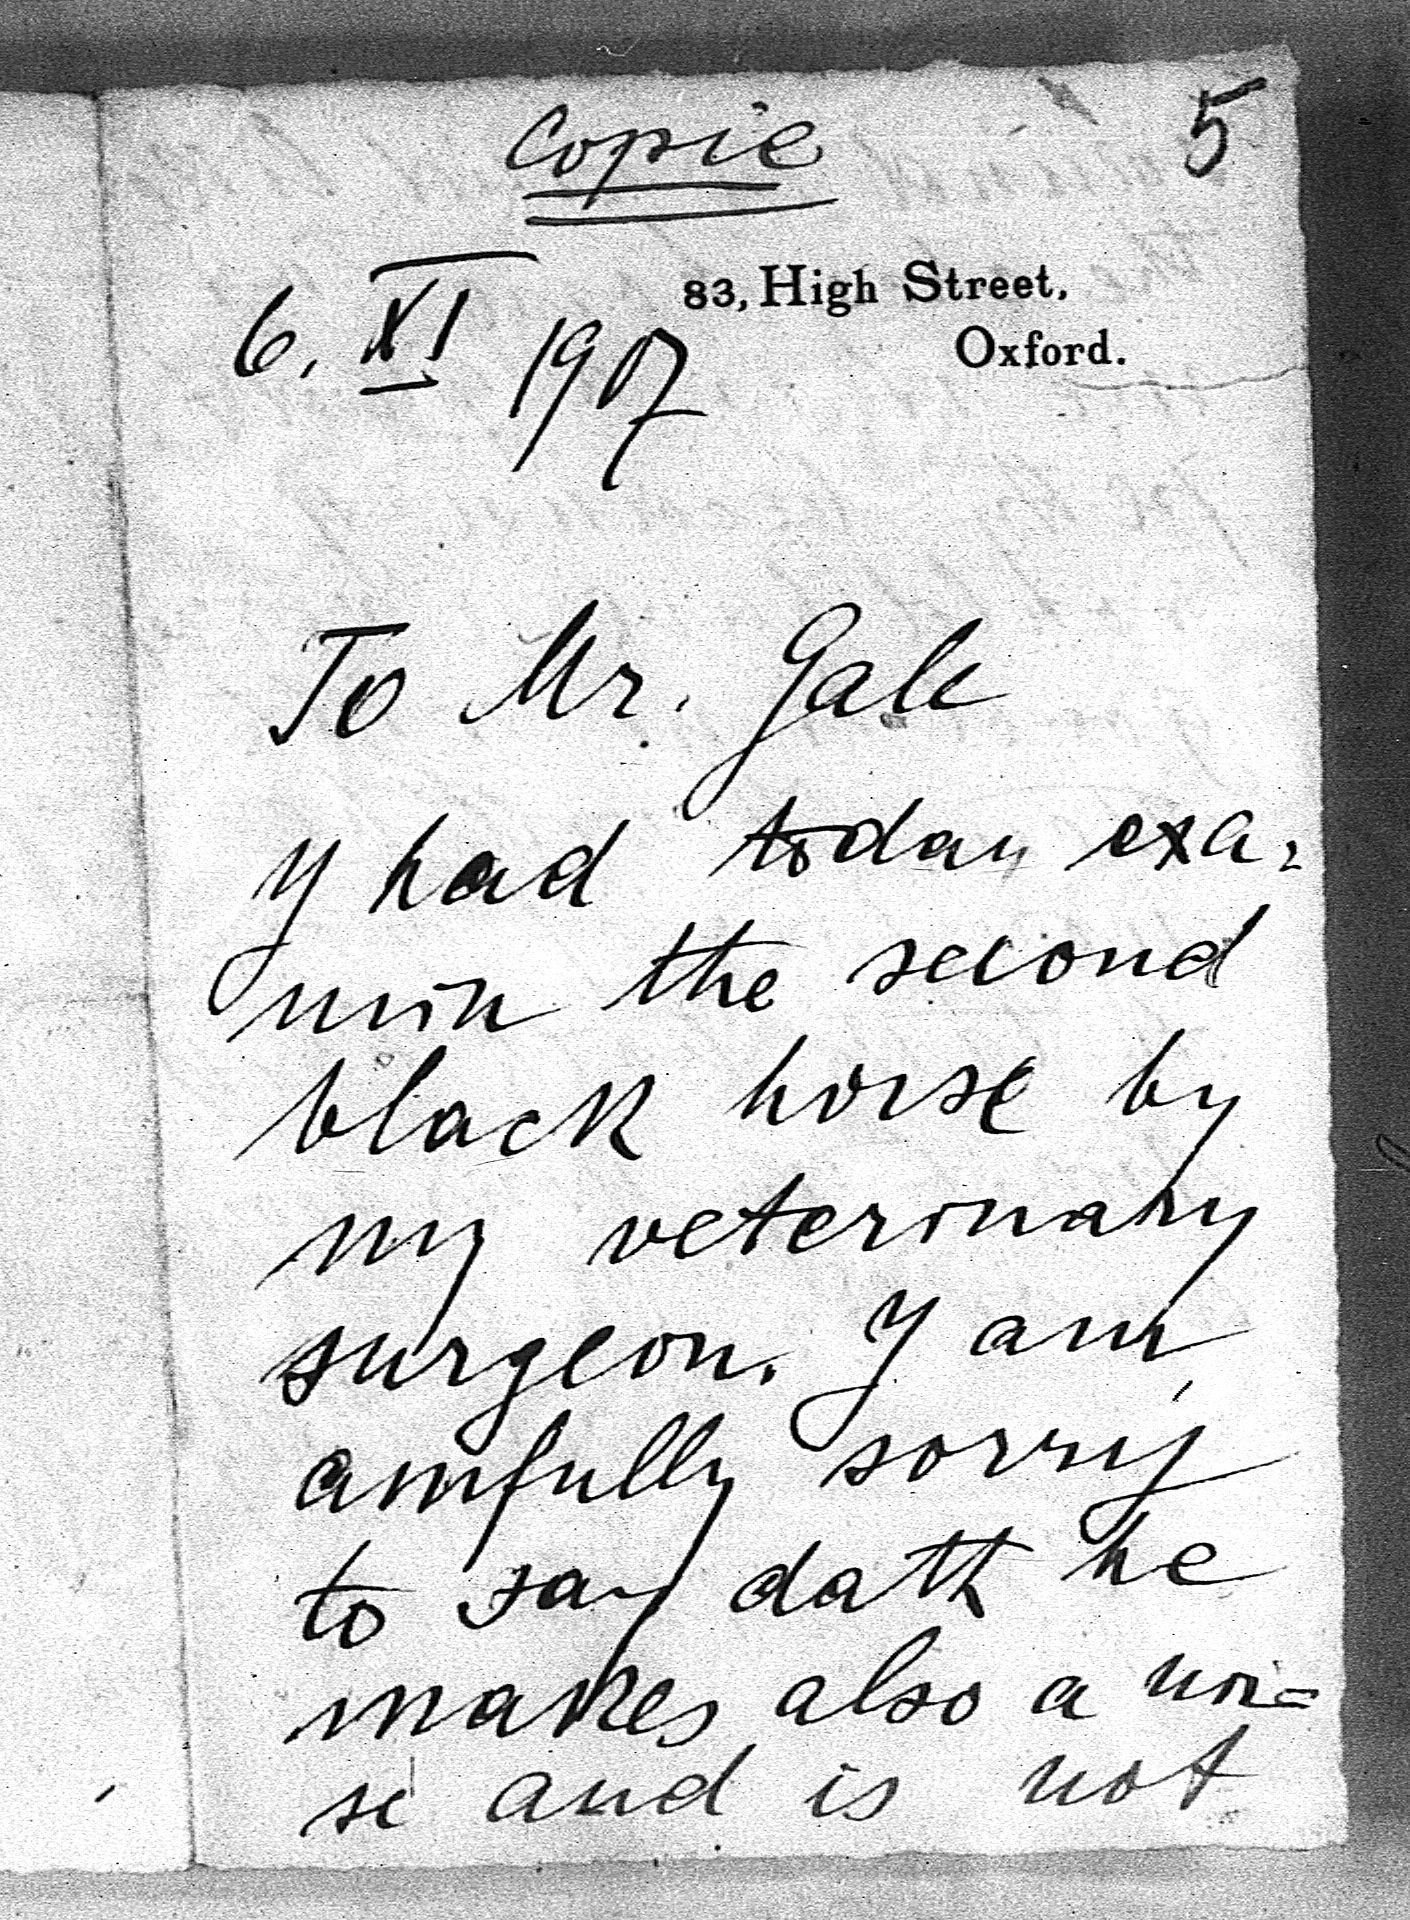 Copie
5
83, High Street,
Oxford.
6. XI 1907
To Mr. Gale
Y had today exa-
min the second
black horse by
my veterinary
surgeon. Y am
amfully sorry
to say dath he
makes also a noi=
se and is not